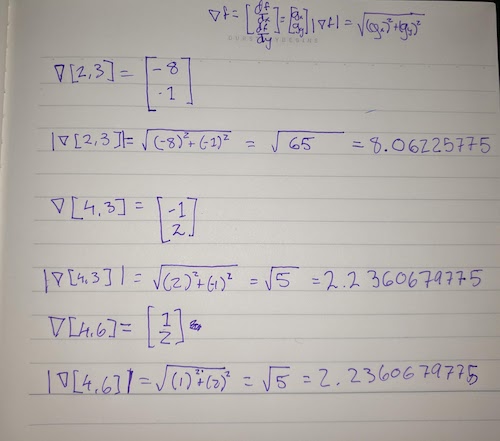 ∇f = [df/dx df/dy] = [gx gy] |∇f| = √(gx)²+(gy)²
∇[2,3] = [-8 -1]
|∇[2,3]| = √(-8)²+(-1)² = √65 = 8.06225775
∇[4,3] = [-1 2]
|∇[4,3]| = √(2)²+(-1)² = √5 = 2.2360679775
∇[4,6] = [1 2]
|∇[4,6]| = √(1)²+(2)² = √5 = 2.2360679775